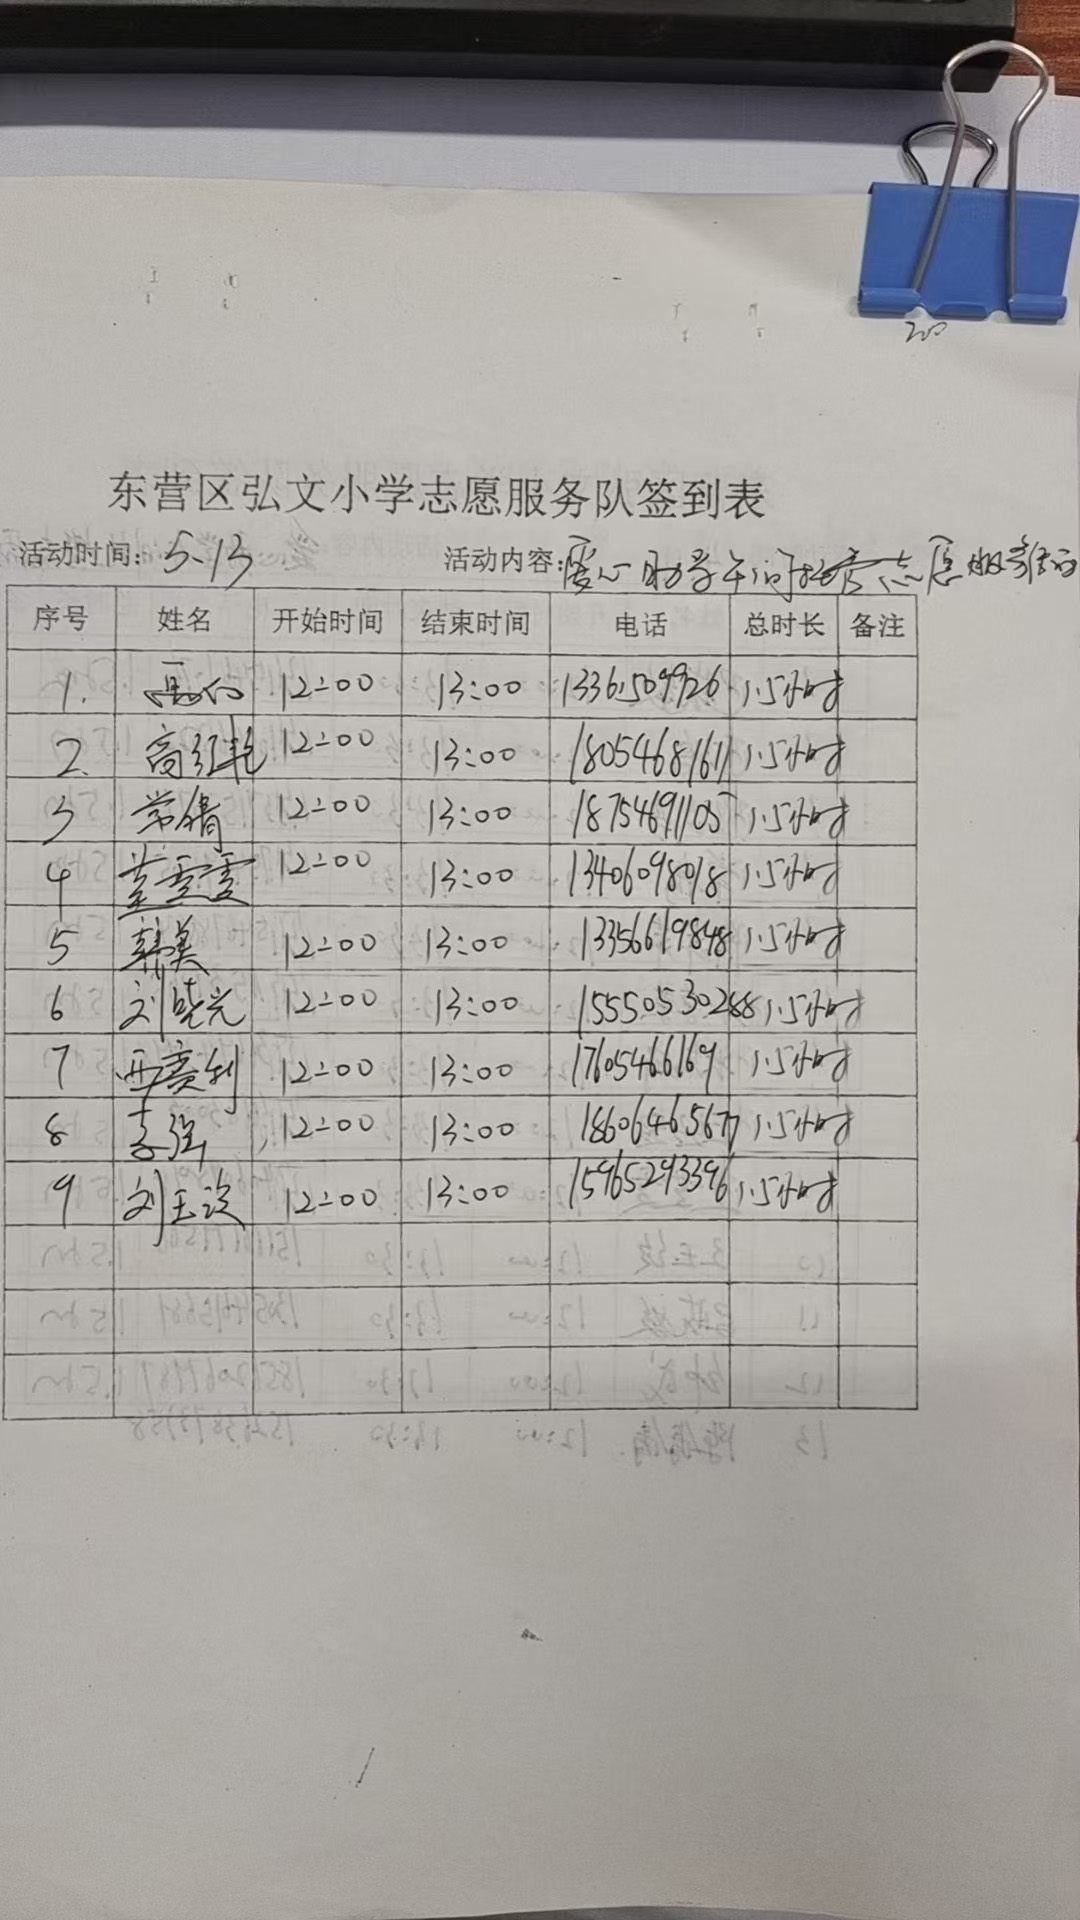 东营区弘文小学志愿服务队签到表
活动时间: 5.13 活动内容: 爱心助学午间托管志愿服务活动
序号 姓名 开始时间 结束时间 电话 总时长 备注
1. 12:00 13:00 13361509926 1.5小时
2. 高红艳 12:00 13:00 18054681611 1.5小时
3 常倩 12:00 13:00 18754691105 1.5小时
4 12:00 13:00 13406098018 1.5小时
5 韩美 12:00 13:00 13356619848 1.5小时
6 刘晓光 12:00 13:00 15550530288 1.5小时
7 12:00 13:00 17605466169 1.5小时
8 李强 12:00 13:00 18606465677 1.5小时
9 刘玉 12:00 13:00 15965293396 1.5小时